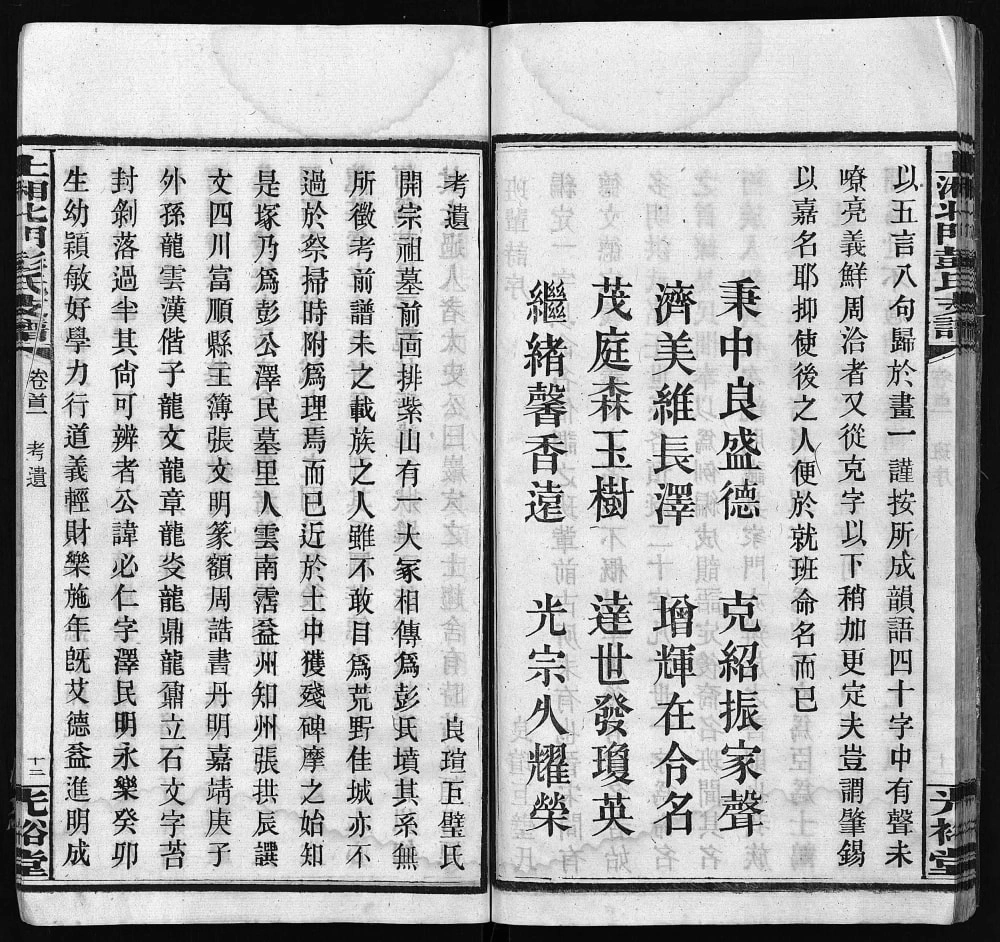 以五言八句歸於畫一謹按所成韻語四十字中有聲未
嘹亮義鮮周洽者又從克字以下稍加更定夫豈謂肇錫
以嘉名耶抑使後之人便於就班命名而已
秉中良盛德 克紹振家聲
濟美維長澤 增輝在令名
茂庭森玉樹 達世發瓊英
繼緒馨香遠 光宗久耀榮
上湘北門彭氏支譜 卷首 考遺 十二 光裕堂
考遺 良瑄 玉璧氏
開宗祖墓前面排紫山有一大冢相傳爲彭氏墳其系無
所徵考前譜未之載族之人雖不敢目爲荒野佳城亦不
過於祭掃時附爲理焉而已近於土中獲殘碑摩之始知
是塚乃爲彭公澤民墓里人雲南霑益州知州張拱辰譔
文四川富順縣主簿張文明篆額周誥書丹明嘉靖庚子
外孫龍雲漢偕子龍文龍章龍炎龍鼎龍鼐立石文字苔
封剝落過半其尙可辨者公諱必仁字澤民明永樂癸卯
生幼穎敏好學力行道義輕財樂施年旣艾德益進明成